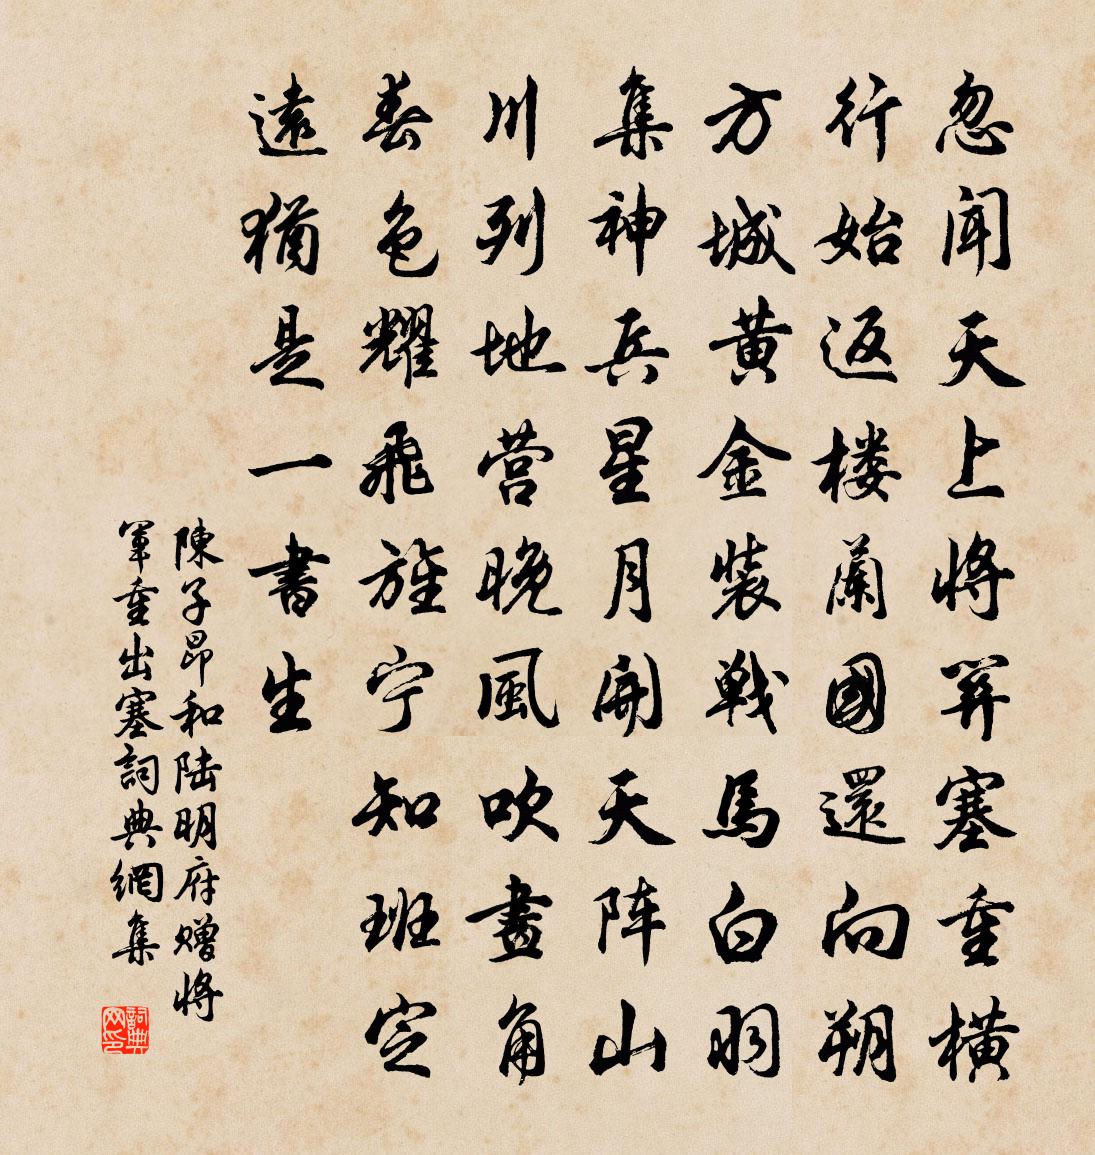 忽聞天上將關塞重橫
行始返楼蘭國還向朔
方城黄金裝戦馬白羽
集神兵星月開天阵山
川列地营晚風吹畫角
春色耀飛旌宁知班定
遠猶是一書生
陳子昂和陆明府赠將
軍重出塞詞典網集
詞典网印